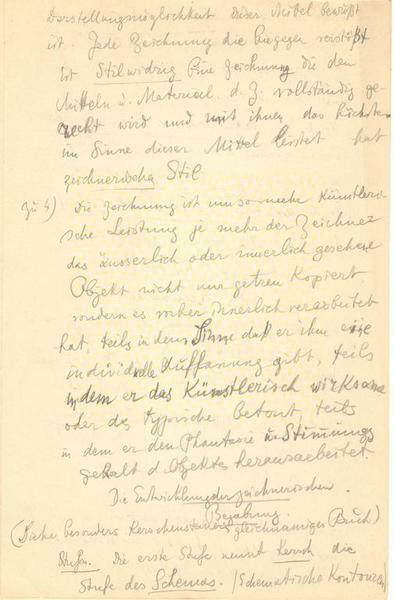 Darstellungsmöglichkeit dieser Mittel bewußt
ist. Jede Zeichnung die hiegegen verstößt
ist Stilwidrig Eine Zeichnung die den
Mitteln u. Material d. Z. vollständig ge-
recht wird und mit ihnen das Höchste
im Sinne dieser Mittel leistet hat
zeichnerischen Stil
zu 4) Die Zeichnung ist um so mehr Künstleri
sche Leistung je mehr der Zeichner
das äusserlich oder innerlich gesehene
Objekt nicht nur getreu Kopiert
sondern es vorher innerlich verarbeitet
hat, teils in dem Sinne daß er ihm eine
individuelle Auffassung gibt, teils
indem er das Künstlerisch wirksame
oder das typische betont, teils
in dem er den Phantasie u. Stimmungs
gehalt d. Objektes herausarbeitet.
Die Entwicklung der zeichnerischen
Begabung.
(Siehe besonders Kerschensteiners gleichnamiges Buch)
Stufen. Die erste Stufe nennt Kersch. die
Stufe des Schemas. (Schematische Konturen)